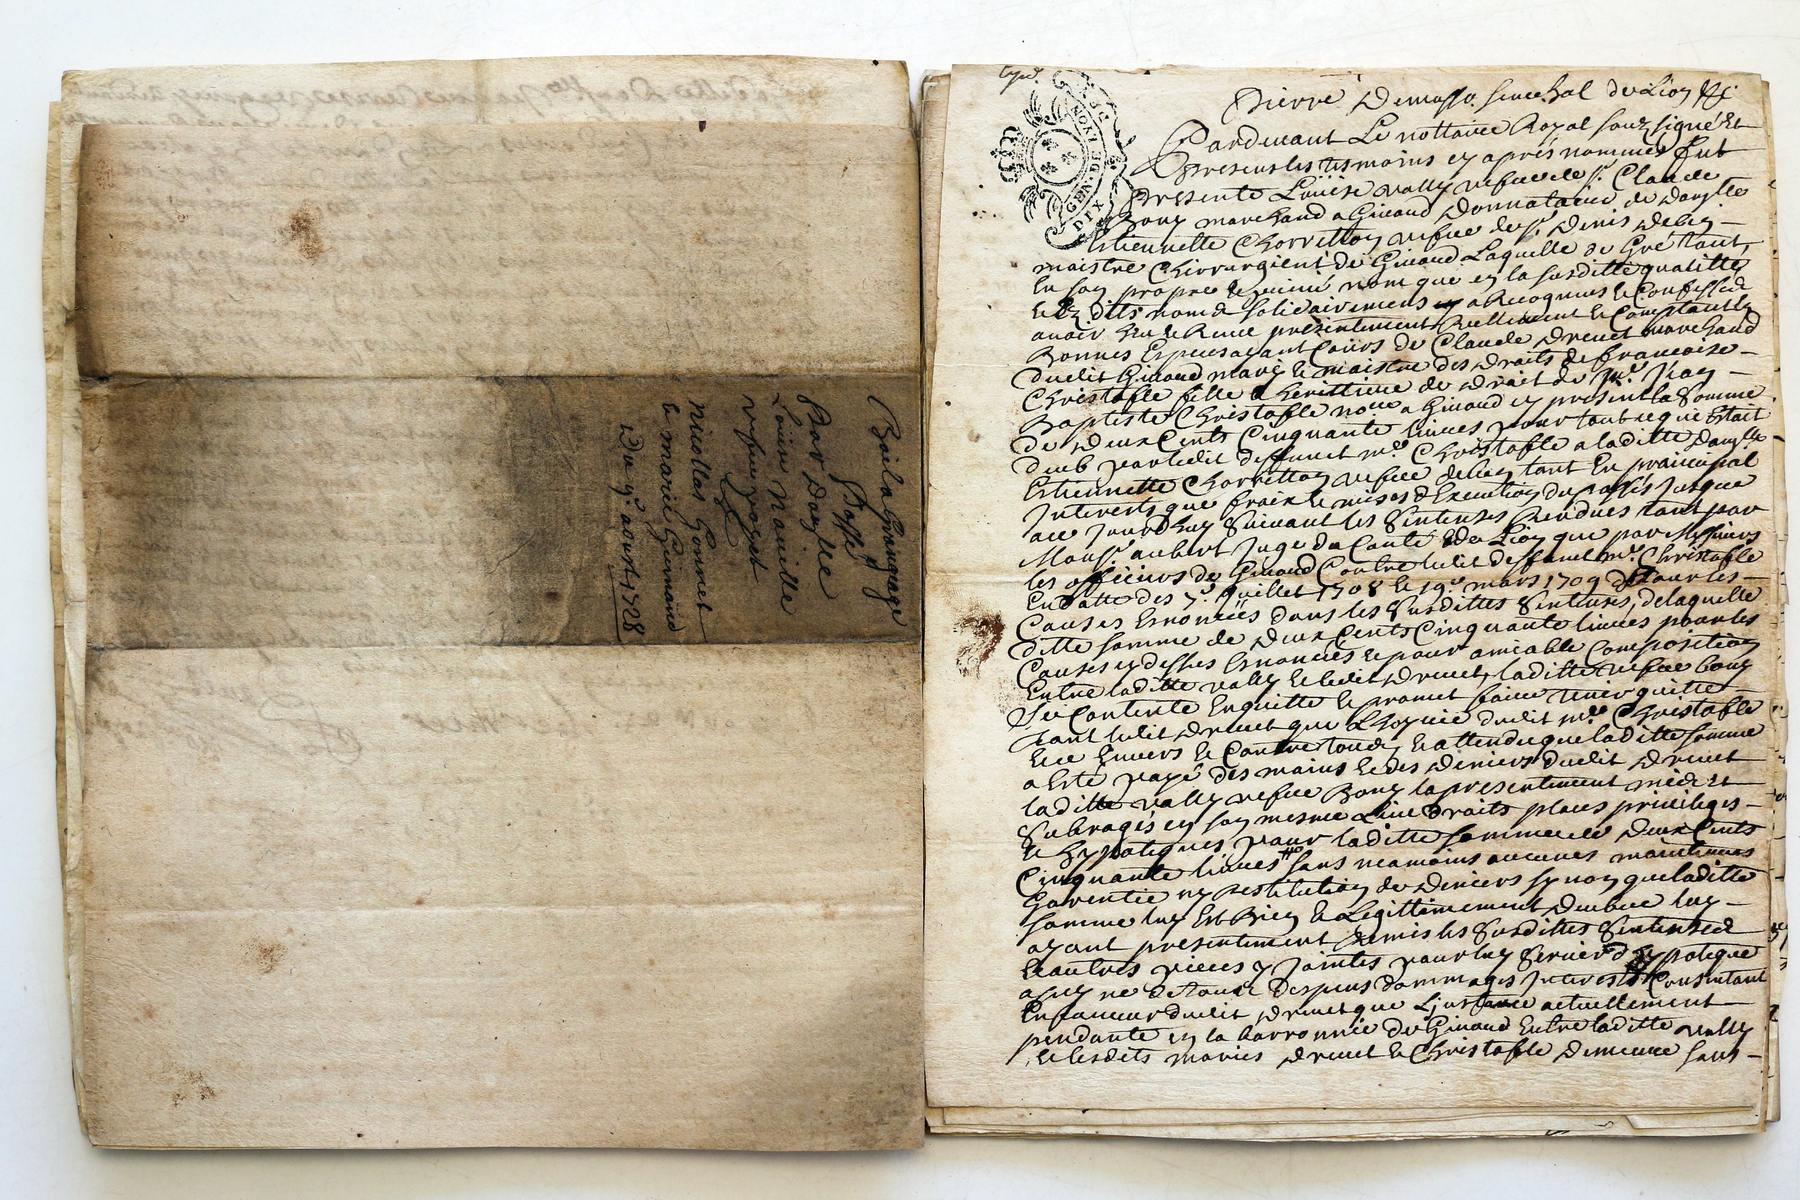 Bail a Grangeage
Passé
Par Daylle
Louise
vefve
&
Nicollas Gonnet
& marie
Du 9e aoust 1728
GEN. DE LION
DIX
Pierre Demasso Senechal de Lion &c
Pardevant Le nottaire Royal soubsigné Et
presens les tesmoins cy apres nommés fut
presente Louise vally vefve de Sr. Claude
Bouy marchand a Giraud Donnataire de Dayslle
Estiennette Chorretton vefve de Sr. Denis
maistre Chirurgient de Giraud Laquelle de Gré tant
En son propre & privé nom que en la susditte qualitté
& Es dits noms solidairement a Recognus & Confessé
avoir Eu & Receu présentement Reellement & Comptant En
Bonnes Espesses ayant Cours de Claude Drevet marchand
dudit Giraud mary & maistre des Droits de françoise
Christofle fille & herittiere de Droit de Me. Jean
Baptiste Christofle nottre a Giraud cy present la Somme
de Deux Cents Cinquante livres pour tout ce qui Estait
deub par ledit deffunct Me. Christofle a laditte Dayslle
Estiennette Chorretton vefve tant En principal
Interests que fraix & mises d'Execution du passés Jusque
a ce Jourdhuy Suivant les Sentenses Rendues tant par
Monsr. aubert Juge du Comté de Lion que par Messieurs
les officiers de Giraud Contre ledit deffunct Me. Christofle
En Datte des 7e. Juillet 1708 & 19e. mars 1709 & pour les
Causes Enoncées dans les Susdittes Sentenses, de laquelle
ditte somme de Deux Cents Cinquante livres pour les
Causes cy dessus Enoncées & pour amiable Composition
Entre laditte vally & ledit Drevet, laditte vefve bouy
Sei Contente En quitte & promet faire tenir quitte
tant ledit Drevet que L'hoyrie dudit Me. Christofle
& ce Envers & Contre tous, & attendu que laditte somme
a Esté payé des mains & des Deniers dudit Drevet
laditte vally vefve Bouy la presentement mis &
Subrogés en son mesme Lieu Droits places privileges
& hypotiques pour laditte somme de Deux Cents
Cinquante livres sans neamoins aucunes maintenues
Garentie ny restitution de Deniers synon que laditte
somme luy Est Bien & Legittimement Deube luy
ayant presentement Remis les Susdittes Sentensed
& autres pieces y Jointes pour luy Servir d'hypotique
a peine de tous Despens dommages Interests Consentant
En faveur dudit Drevet que L'instance actuellement
pendante en la barronnie de Giraud Entre laditte vally
& lesdits mariés Drevet & Christofle Demeure sans